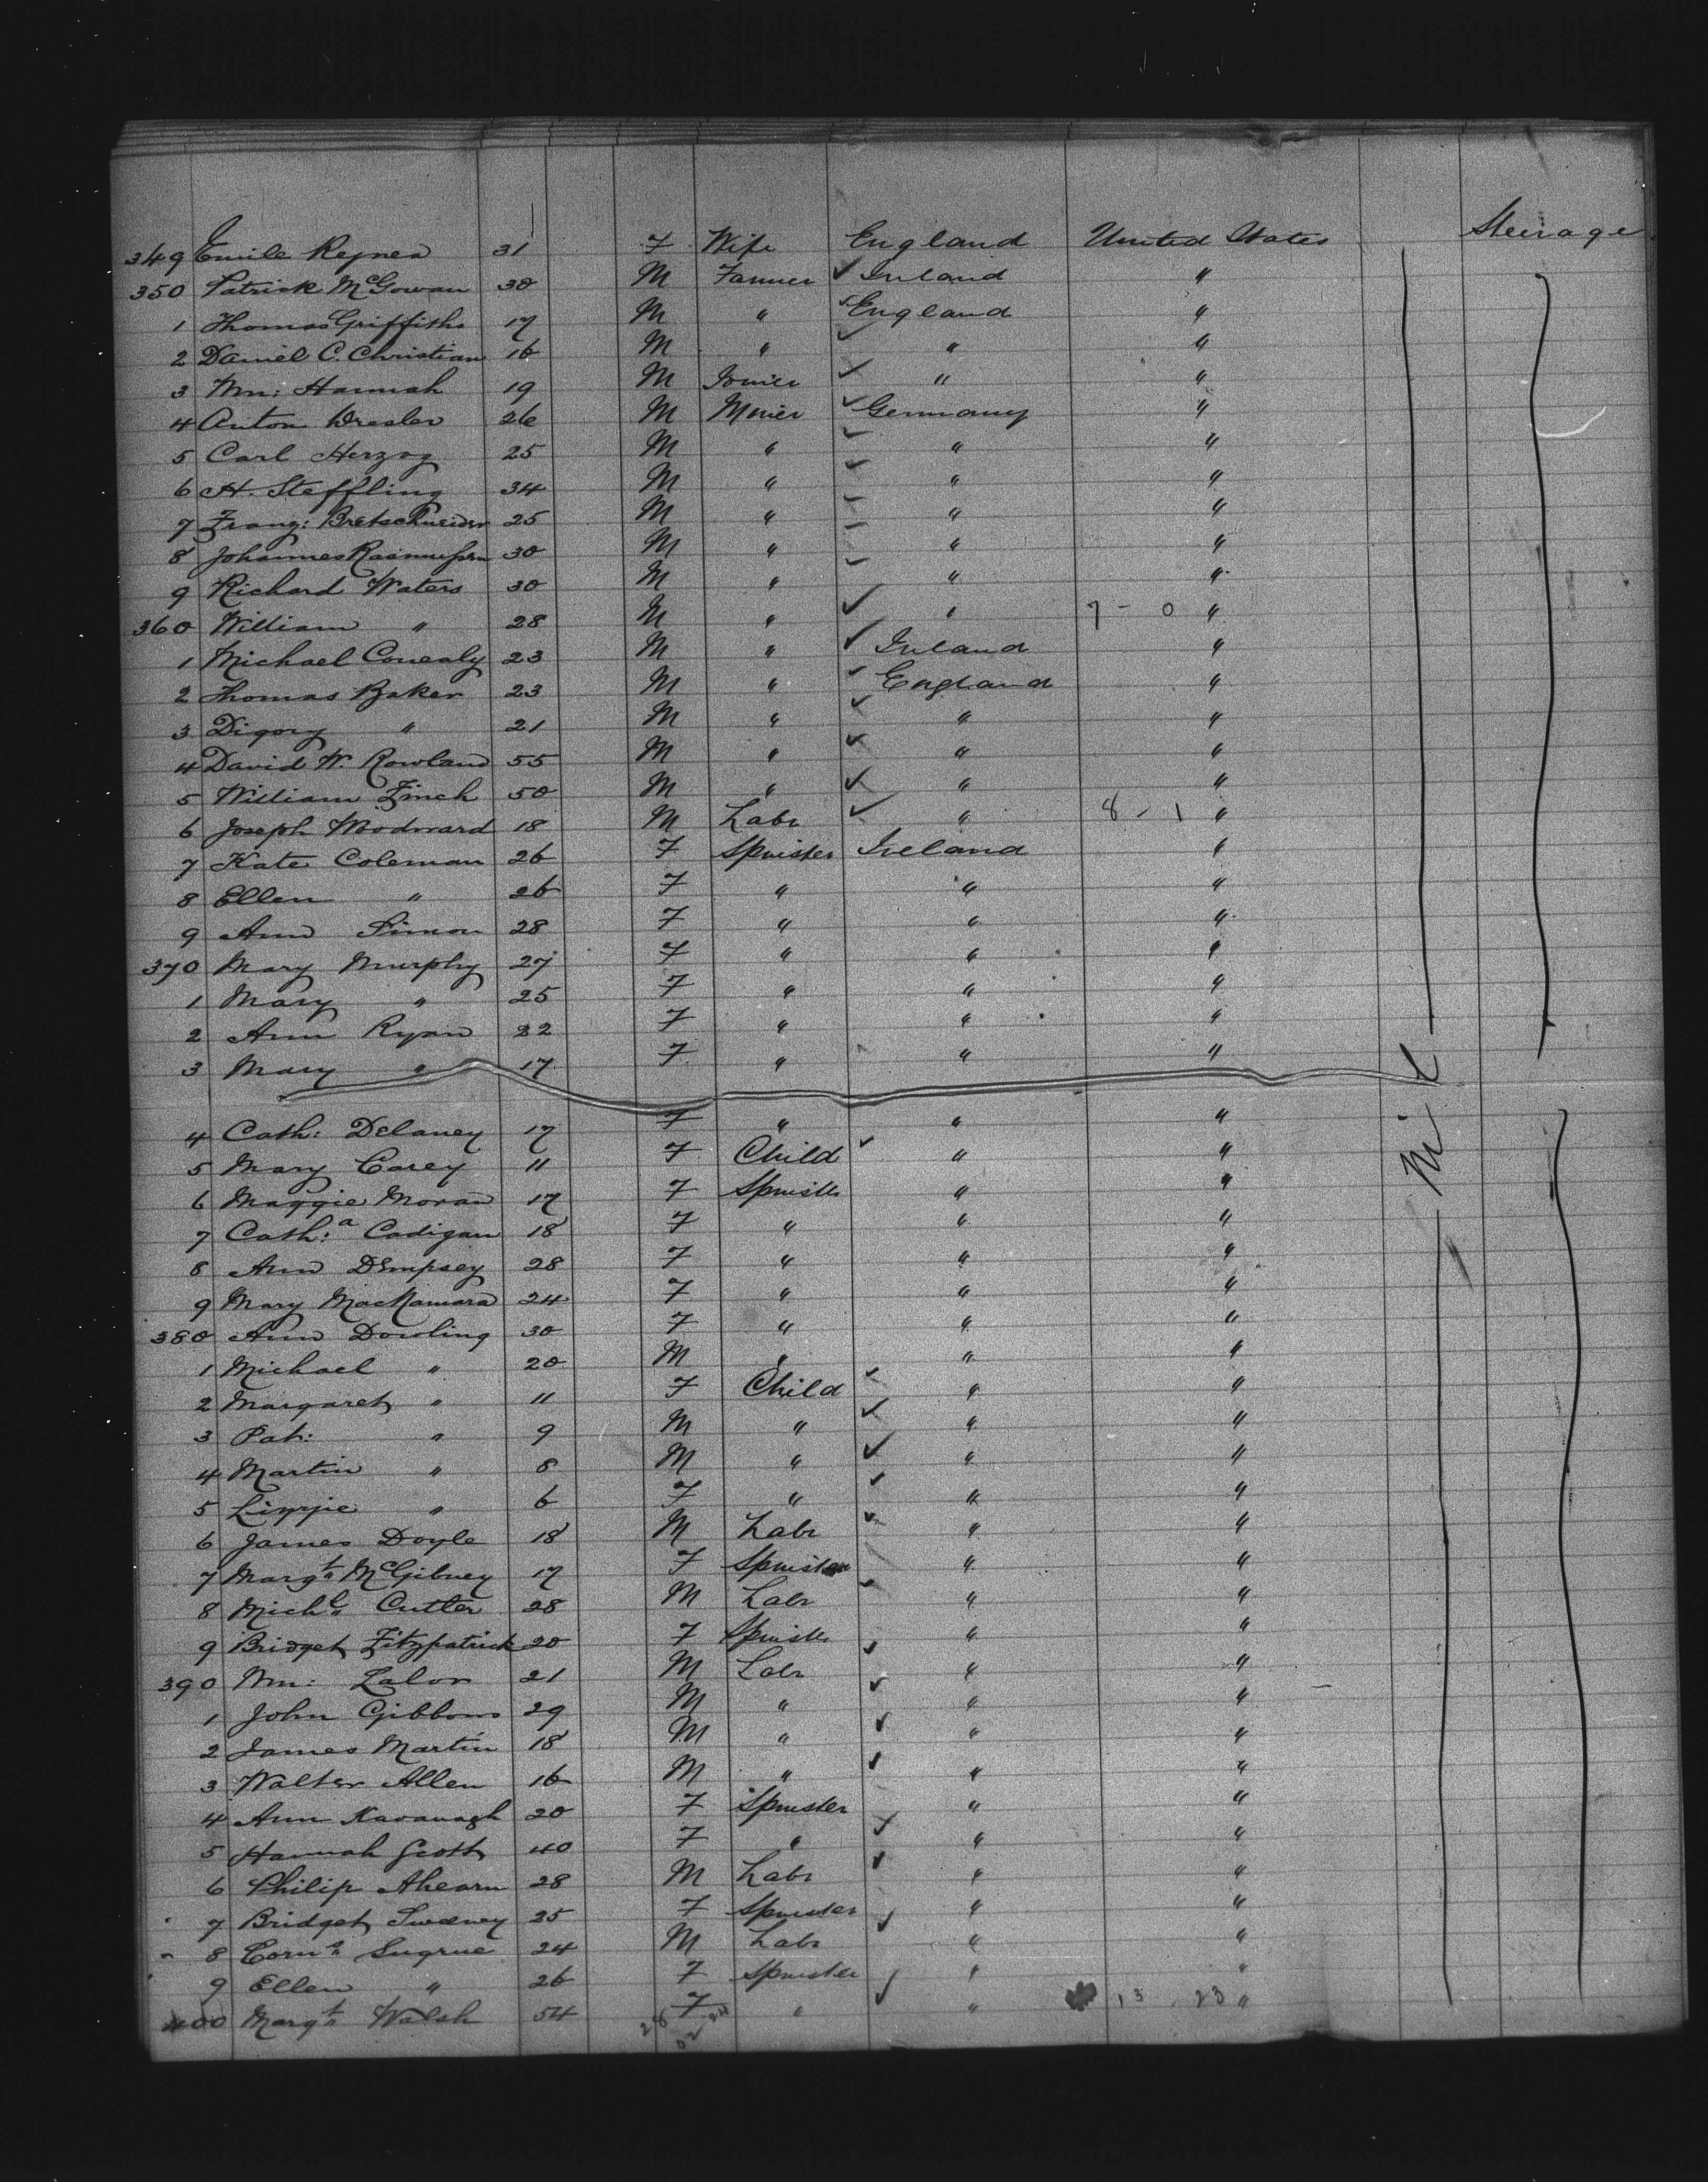 349 Emile Reynea 31 F Wife England United States Steerage
350 Patrick McGowan 30 M Farmer ✓ Ireland "
1 Thomas Griffiths 17 M " ✓ England "
2 Daniel C. Christian 16 M " ✓ " "
3 Wm: Hannah 19 M Joiner ✓ " "
4 Anton Dresler 26 M Miner ✓ Germany "
5 Carl Herzog 25 M " ✓ " "
6 H. Steffling 34 M " ✓ " "
7 Franz: Bretschneider 25 M " " "
8 Johannes Rasmussen 30 M " " "
9 Richard Waters 30 M " ✓ " "
360 William " 28 M " ✓ " 7 - 0 "
1 Michael Conealy 23 M " ✓ Ireland "
2 Thomas Baker 23 M " ✓ England "
3 Digory " 21 M " ✓ " "
4 David W. Rowland 55 M " ✓ " "
5 William Finch 50 M " ✓ " "
6 Joseph Woodward 18 M Labr ✓ " 8 - 1 "
7 Kate Coleman 26 F Spinster Ireland "
8 Ellen " 26 F " " "
9 Ann Simon 28 F " " "
370 Mary Murphy 27 F " " "
1 Mary " 25 F " " "
2 Ann Ryan 22 F " " "
3 Mary " 17 F " " "
Nil
4 Cath: Delaney 17 F " " "
5 Mary Carey 11 F Child ✓ " "
6 Maggie Moran 17 F Spinster " "
7 Cath:a Cadigan 18 F " " "
8 Ann Dempsey 28 F " " "
9 Mary MacNamara 24 F " " "
380 Ann Dowling 30 F " " "
1 Michael " 20 M " " "
2 Margaret " 11 F Child ✓ " "
3 Pat: " 9 M " ✓ " "
4 Martin " 8 M " ✓ " "
5 Lizzie " 6 F " ✓ " "
6 James Doyle 18 M Labr ✓ " "
7 Margt McGibney 17 F Spinster " "
8 Michl Cutler 28 M Labr ✓ " "
9 Bridget Fitzpatrick 20 F Spinster " "
390 Wm: Lalor 21 M Labr ✓ " "
1 John Gibbons 29 M " ✓ " "
2 James Martin 18 M " ✓ " "
3 Walter Allen 16 M " ✓ " "
4 Ann Kavanagh 20 F Spinster " "
5 Hannah Scott 40 F " ✓ " "
6 Philip Ahearn 28 M Labr ✓ " "
7 Bridget Sweeney 25 F Spinster " "
8 Corns Sugrue 24 M Labr ✓ " "
9 Ellen " 26 F Spinster " "
400 Margt Walsh 54 F " ✓ " 13 23 "
28 24